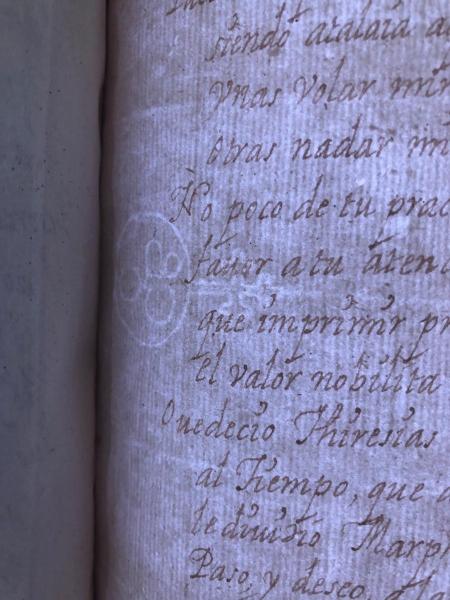 siendo atalaia
ynas volar
otras nadar
No poco de tu
fauor a tu aten
que imprimir pr
el valor nobilita
Ouedecio Thiresias
al Tiempo, que
le diuidio Marp
Paso, y deseo,